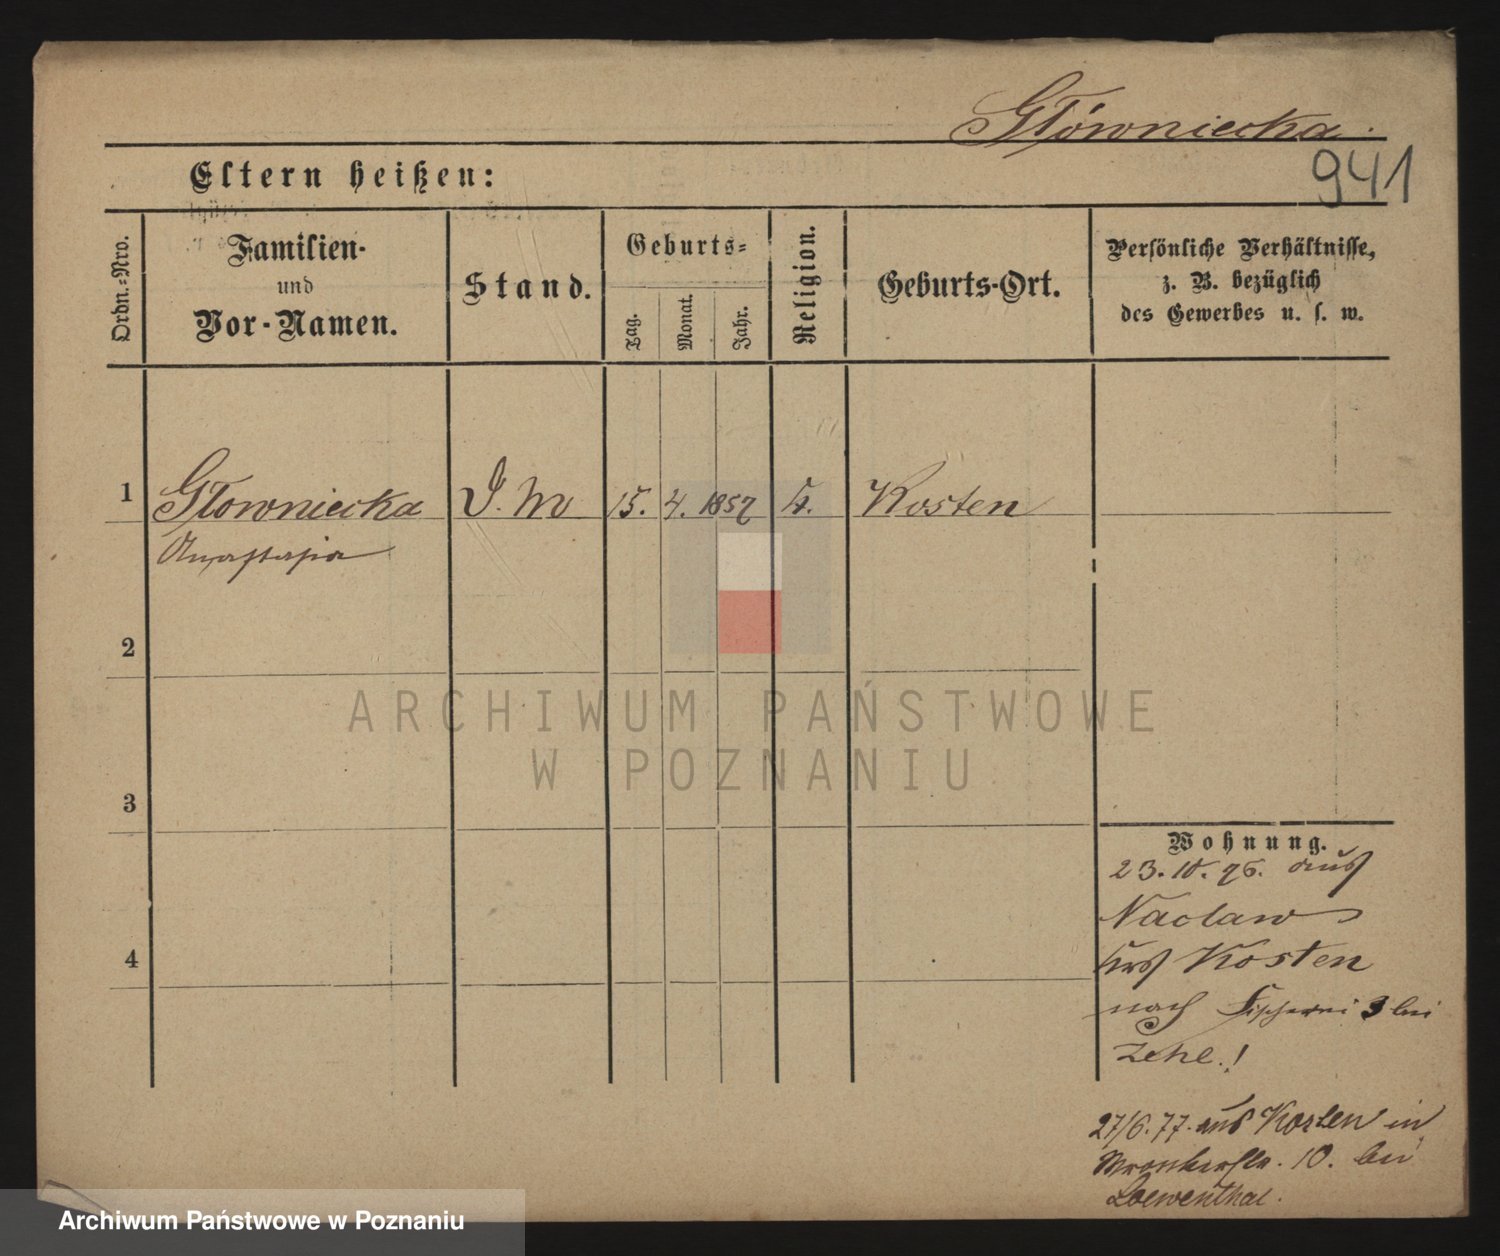 Główniecka.
941
Eltern heißen:
Ordn.-Nro.
Familien-
und
Vor-Namen.
Stand.
Geburts-
Tag.
Monat.
Jahr.
Religion.
Geburts-Ort.
Persönliche Verhältnisse,
z. B. bezüglich
des Gewerbes u. s. w.
1 Głowniecka D. M 15. 4. 1857 k. Kosten
Anastasia
2
3
4
ARCHIWUM PAŃSTWOWE
W POZNANIU
Wohnung.
23. 10. 76. aus
Naclaw
Kosten
nach Fischerei 3 bei
Zehe.!
27/6.77. aus Kosten in
Wronkerstr. 10. bei
Loewenthal.
Archiwum Państwowe w Poznaniu